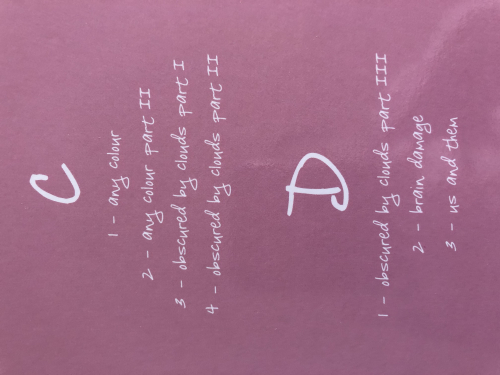 C
1 - any colour
2 - any colour part II
3 - obscured by clouds part I
4 - obscured by clouds part II
D
1 - obscured by clouds part III
2 - brain damage
3 - us and them